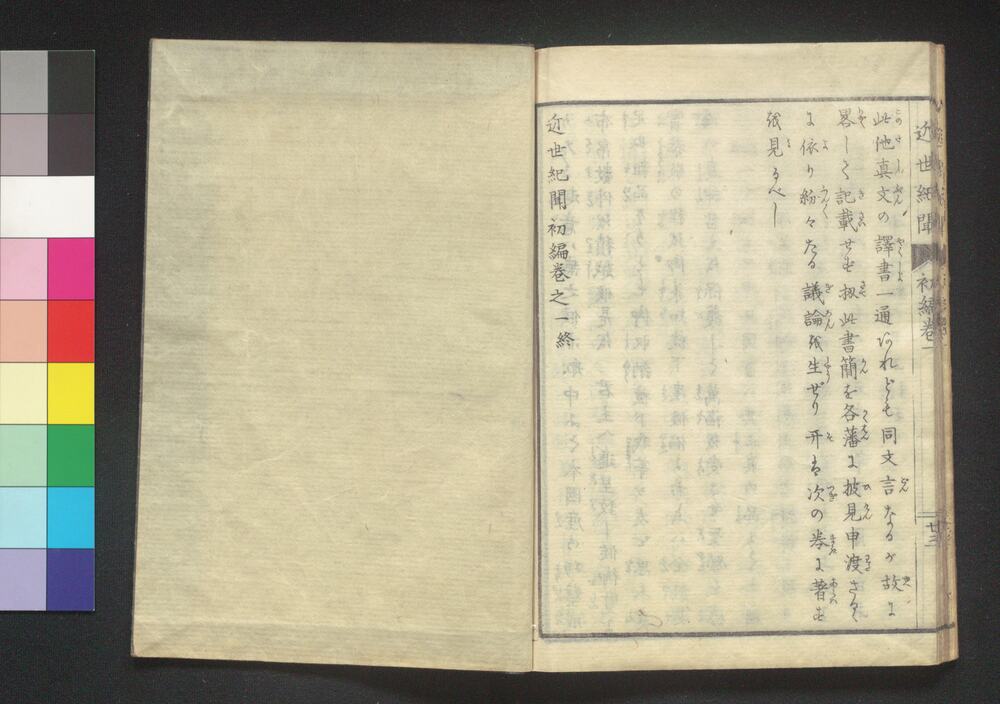 近世紀聞 初編巻一
廿三
此他真文の譯書一通あれども同文言なるが故に
畧して記載せず扨此書簡を各藩に披見申渡さるゝ
に依り紛々たる議論を生ぜり开は次の巻に著す
を見るべし
近世紀聞初編巻之一終